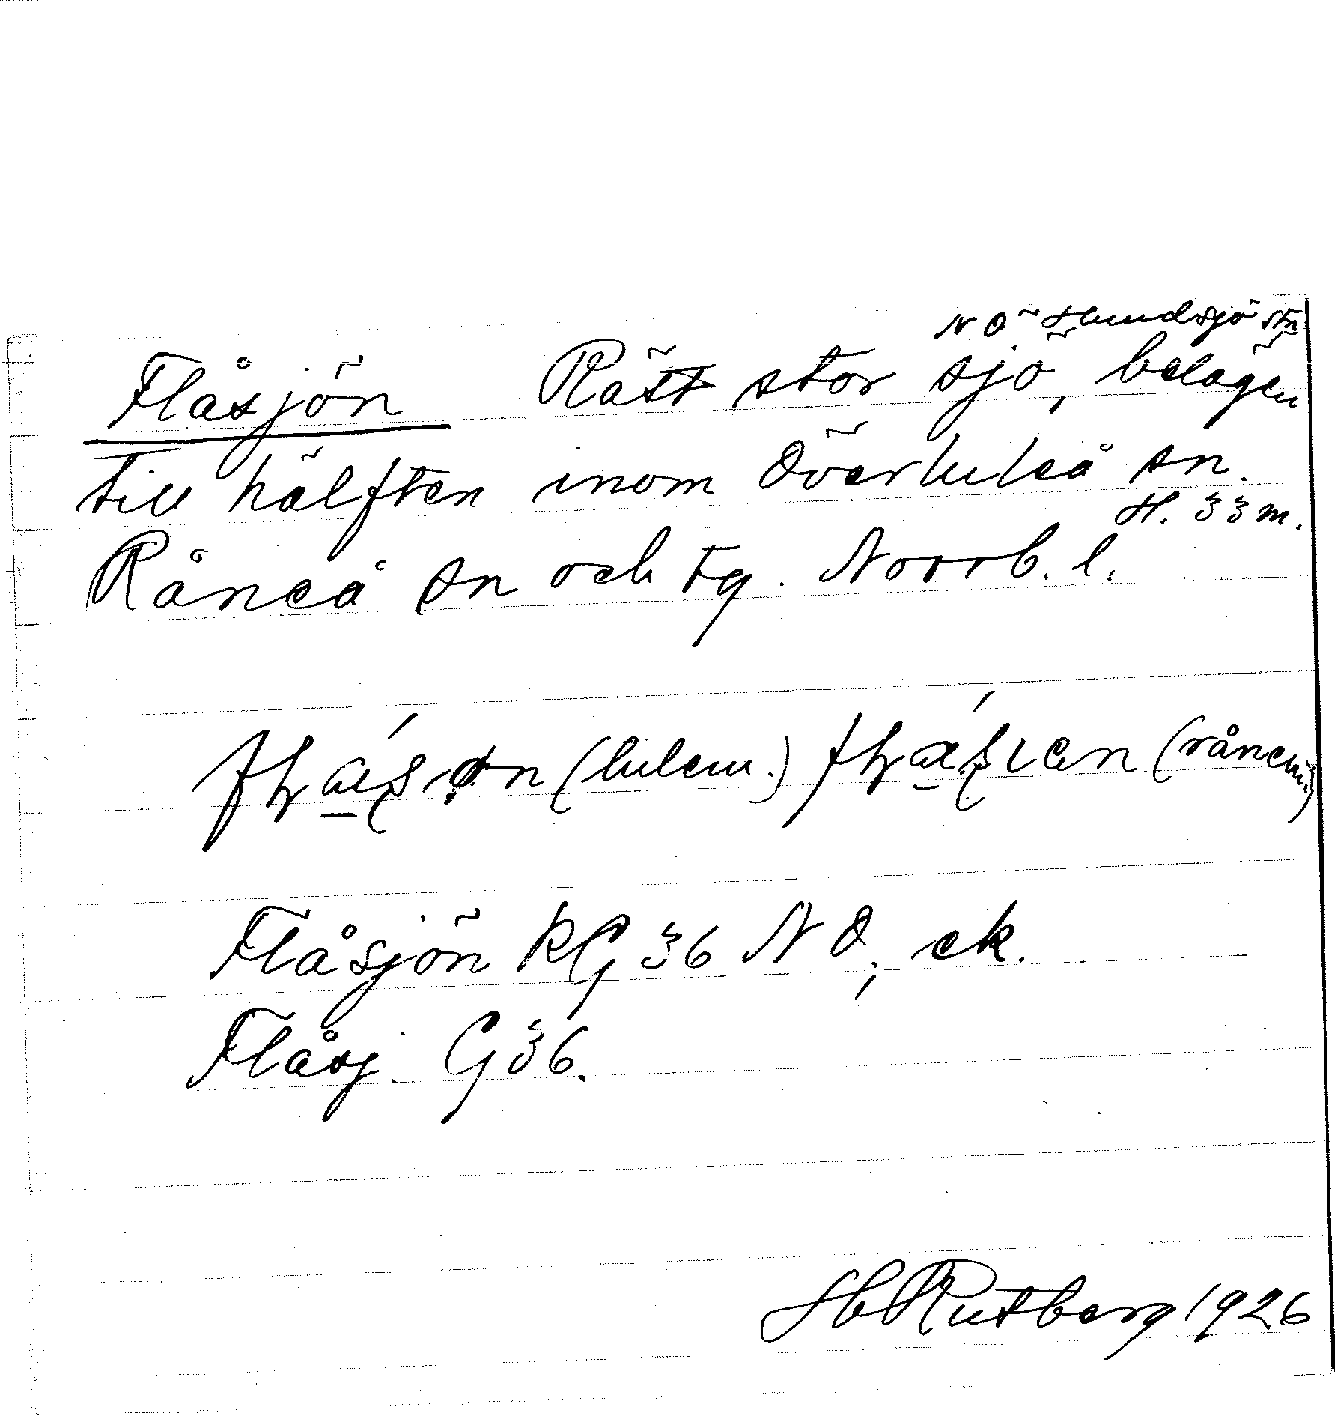 NÖ Hundsjö stn
Flåsjön Rätt stor sjö, belägen
till hälften inom Överluleå sn.
H. 33 m.
Råneå sn och tg. Norrb. l.
(lulem.) (rånem.)
Flåsjön RG 36 NO, ek.
Flåsj. G 36.
H Rutberg 1926